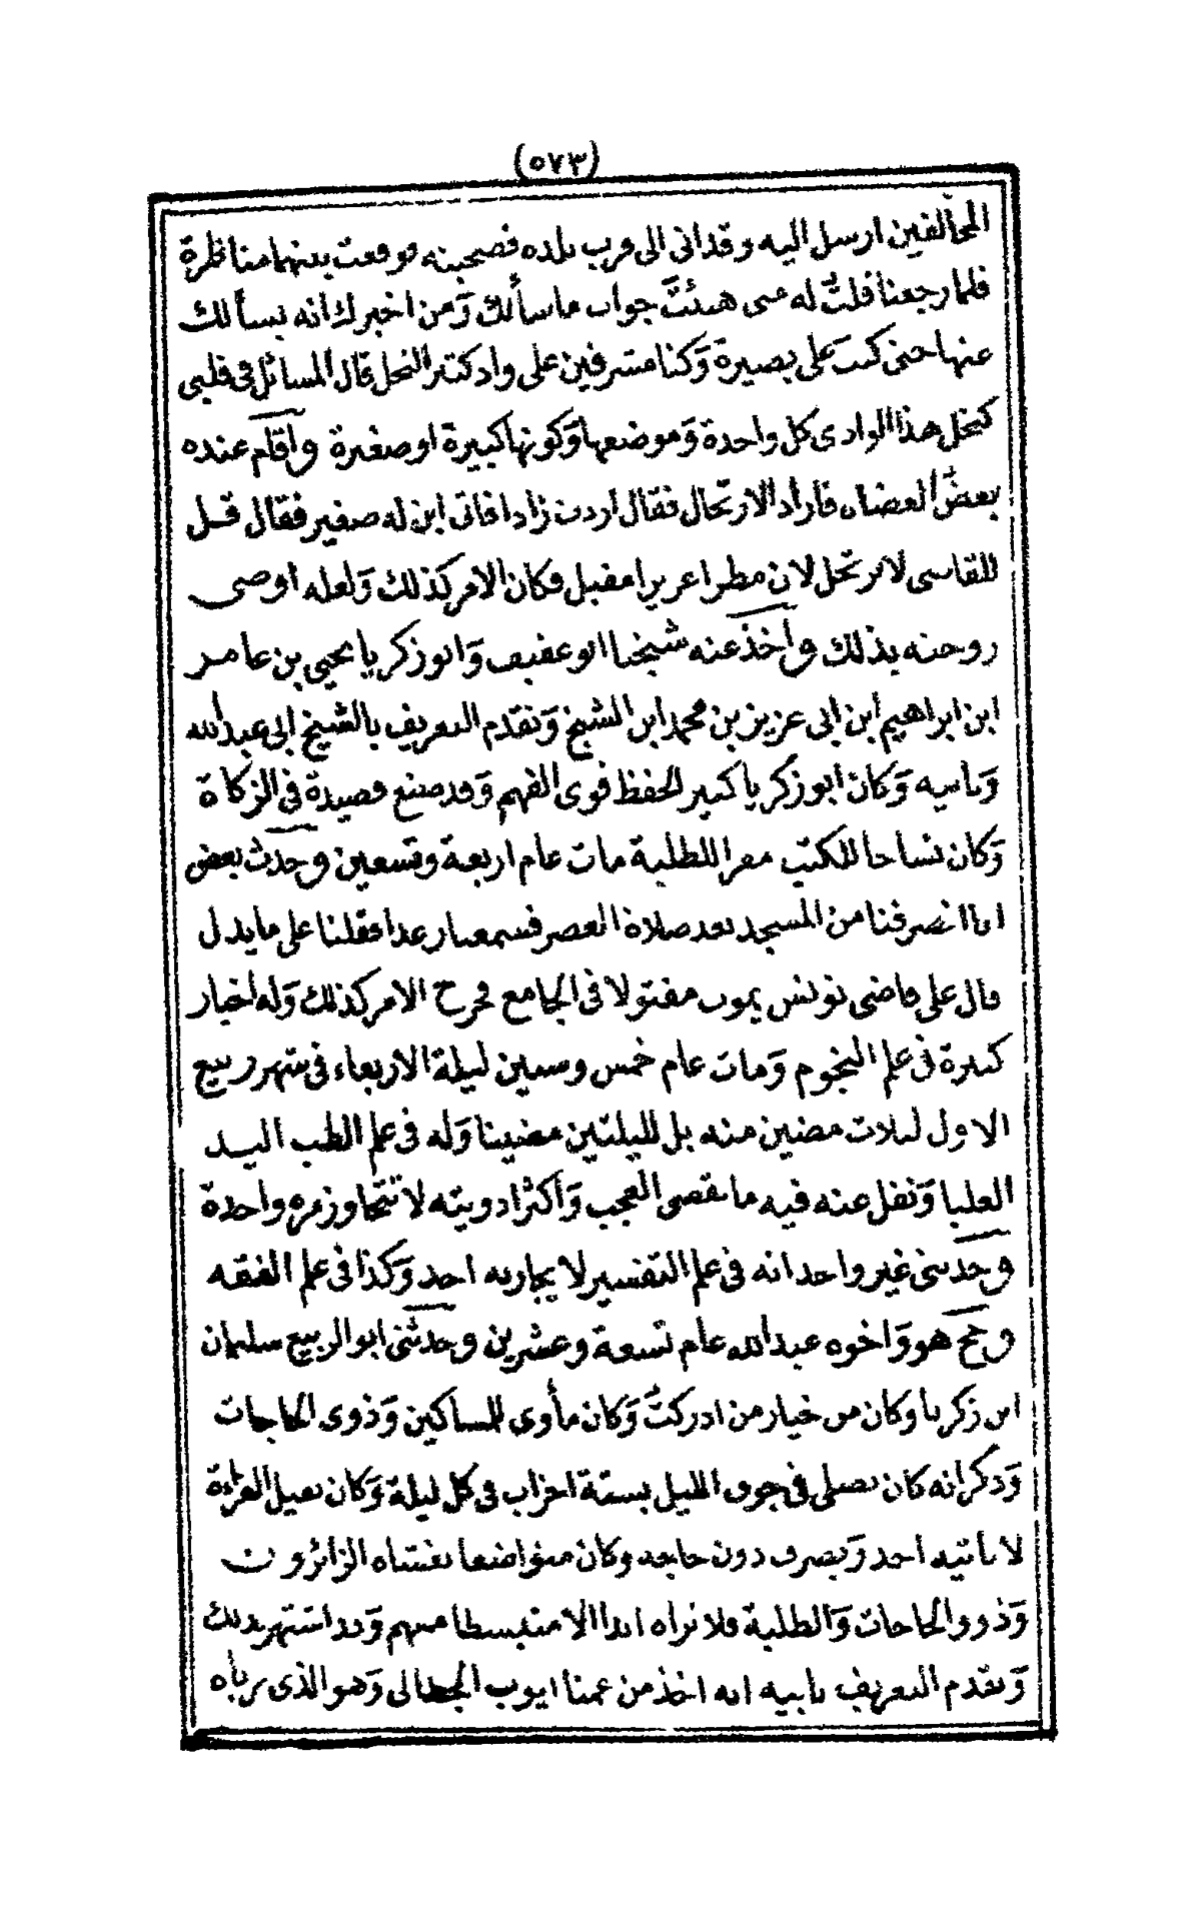 (٥٧٣)
المخالفين ارسل اليه وقد اتى الى قرب بلده فصحبته فوقعت بينهما مناظرة
فلما رجعنا قلت له متى هيئت جواب ما سألك ومن اخبرك انه يسألك
عنها حتى كنت على بصيرة وكنا مشرفين على واد كثير النخل قال المسائل فى قلبى
كنخل هذا الوادى كل واحدة وموضعها وكونها كبيرة او صغيرة واقام عنده
بعض العضاه فاراد الارتحال فقال اردت زادا فاتى ابن له صغير فقال قل
للقاسى لا ترتحل لان مطرا عزيرا مقبل فكان الامر كذلك ولعله اوصى
زوجته بذلك واخذ عنه شيخنا ابو عفيف وابو زكريا يحيى بن عامر
ابن ابراهيم ابن ابى عزيز بن محمد ابن الشيخ وتقدم التعريف بالشيخ ابى عبد الله
وبابيه وكان ابو زكريا كثير الحفظ قوى الفهم وقد صنع قصيدة فى الزكاة
وكان نساخا للكتب مقرا للطلبة مات عام اربعة وتسعين وحدث بعض
انا انصرفنا من المسجد بعد صلاة العصر فسمعنا رعدا فقلنا على ما يدل
قال على قاضى تونس يموت مقتولا فى الجامع فخرج الامر كذلك وله اخبار
كثيرة فى علم النجوم ومات عام خمس وستين ليلة الاربعاء فى شهر ربيع
الاول لثلاث مضين منه بل لليلتين مضيتا وله فى علم الطب اليد
العليا ونقل عنه فيه ما يقضى العجب واكثر ادويته لا تتجاوز مره واحدة
وحدثنى غير واحد انه فى علم التفسير لا يجاريه احد وكذا فى علم الفقه
وحج هو واخوه عبد الله عام تسعة وعشرين وحدثنى ابو الربيع سليمان
ابن زكريا وكان من خيار من ادركت وكان مأوى للمساكين وذوى الحاجات
وذكر انه كان يصلى فى جوف الليل بستة احزاب فى كل ليلة وكان يميل القراءة
لا ياتيه احد ويصرف دون حاجته وكان متواضعا تغشاه الزائرون
وذوو الحاجات والطلبة فلا تراه ابدا الا منبسطا منهم وقد اشتهر بذلك
وتقدم التعريف بابيه انه اخذ من عمنا ايوب الجطالى وهو الذى رباه